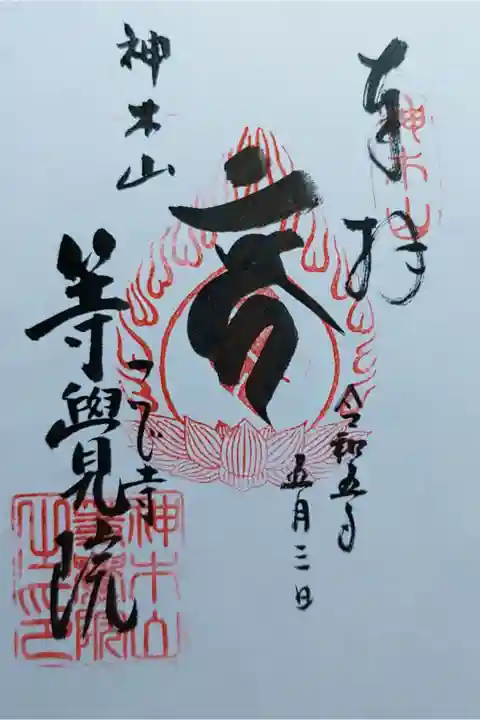 奉拝
神木山
令和五年
五月三日
神木山
つゝじ寺
等覺院
神木山
等覺院
之印